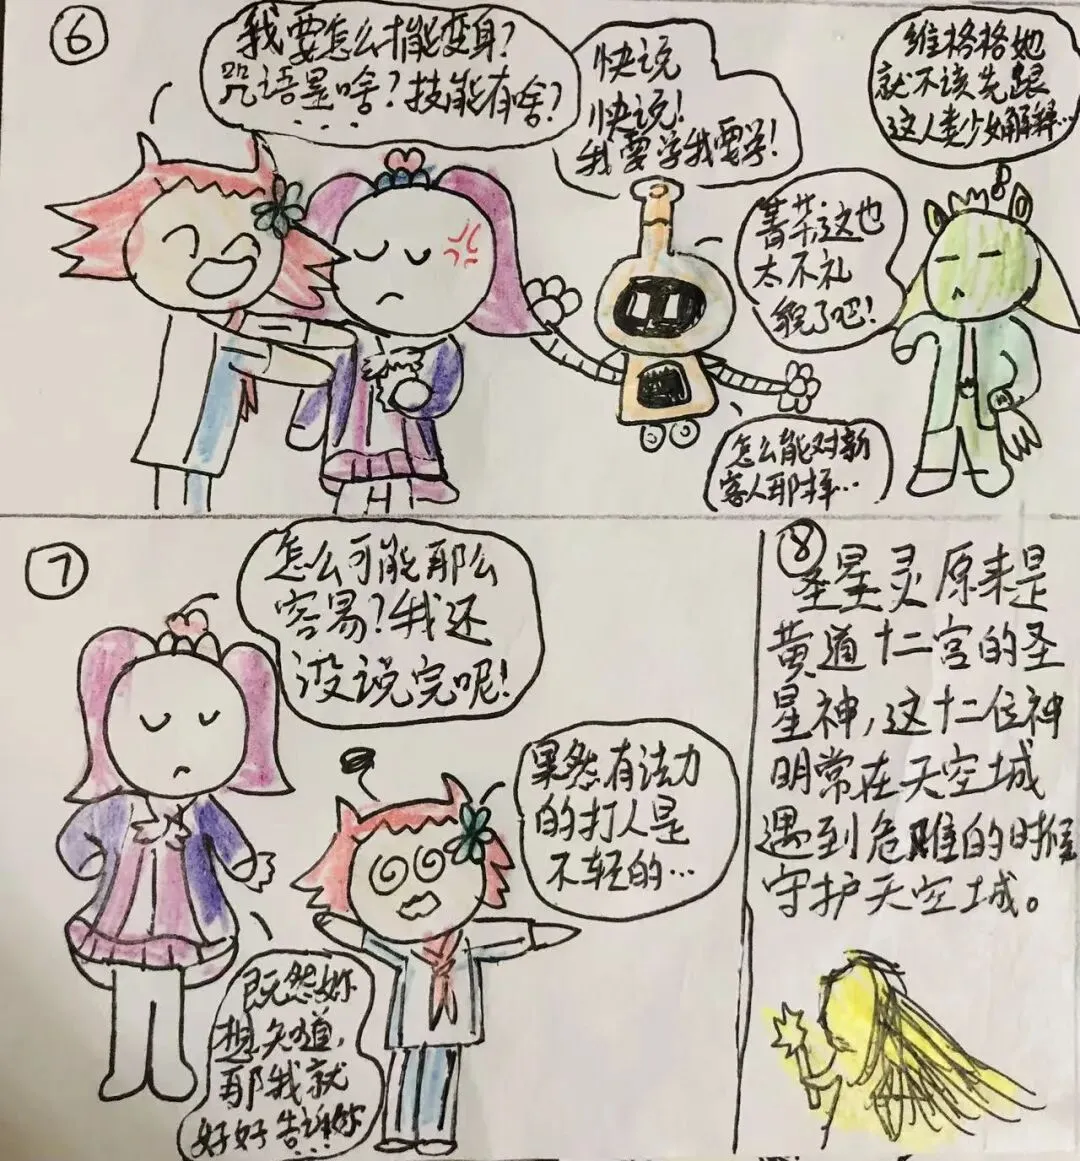 ⑥
我要怎么才能变身?
咒语是啥?技能有啥?
...
快说
快说!
我要学我要学!
维格格她
就不该先跟
这人类少女解释...
菁菜,这也
太不礼
貌了吧!
怎么能对新
客人那样...
⑦
怎么可能那么
容易?我还
没说完呢!
果然有法力
的打人是
不轻的...
既然妳
想知道,
那我就
好好告诉你
...
⑧
圣星灵原来是
黄道十二宫的圣
星神,这十二位神
明常在天空城
遇到危难的时候
守护天空城。